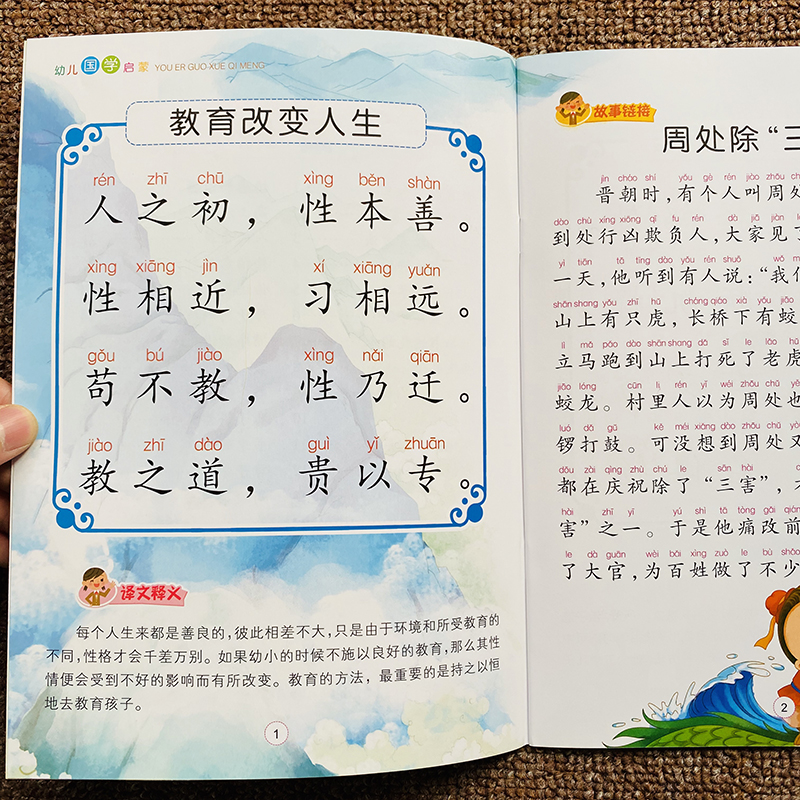 幼儿国学启蒙 YOU ER GUO XUE QI MENG
教育改变人生
rén zhī chū xìng běn shàn
人之初，性本善。
xìng xiāng jìn xí xiāng yuǎn
性相近，习相远。
gǒu bú jiào xìng nǎi qiān
苟不教，性乃迁。
jiào zhī dào guì yǐ zhuān
教之道，贵以专。
译文释义
每个人生来都是善良的，彼此相差不大，只是由于环境和所受教育的
不同，性格才会千差万别。如果幼小的时候不施以良好的教育，那么其性
情便会受到不好的影响而有所改变。教育的方法，最重要的是持之以恒
地去教育孩子。
1
故事链接
周处除“三
jìn cháo shí yǒu gè rén jiào zhōu chǔ
晋朝时，有个人叫周处
dào chù xíng xiōng qī fu rén dà jiā jiàn le
到处行凶欺负人，大家见了
yì tiān tā tīng dào yǒu rén shuō wǒ m
一天，他听到有人说：“我们
shān shang yǒu zhī hǔ cháng qiáo xià yǒu jiāo
山上有只虎，长桥下有蛟
lì mǎ pǎo dào shān shang dǎ sǐ le lǎo hǔ
立马跑到山上打死了老虎
jiāo lóng cūn li rén yǐ wéi zhōu chǔ yě
蛟龙。村里人以为周处也
luó dǎ gǔ kě méi xiǎng dào zhōu chǔ yòu
锣打鼓。可没想到周处又
dōu zài qìng zhù chú le sān hài
都在庆祝除了“三害”，
hài zhī yī yú shì tā tòng gǎi qián
害”之一。于是他痛改前
le dà guān wèi bǎi xìng zuò le bù shǎo
了大官，为百姓做了不少
2